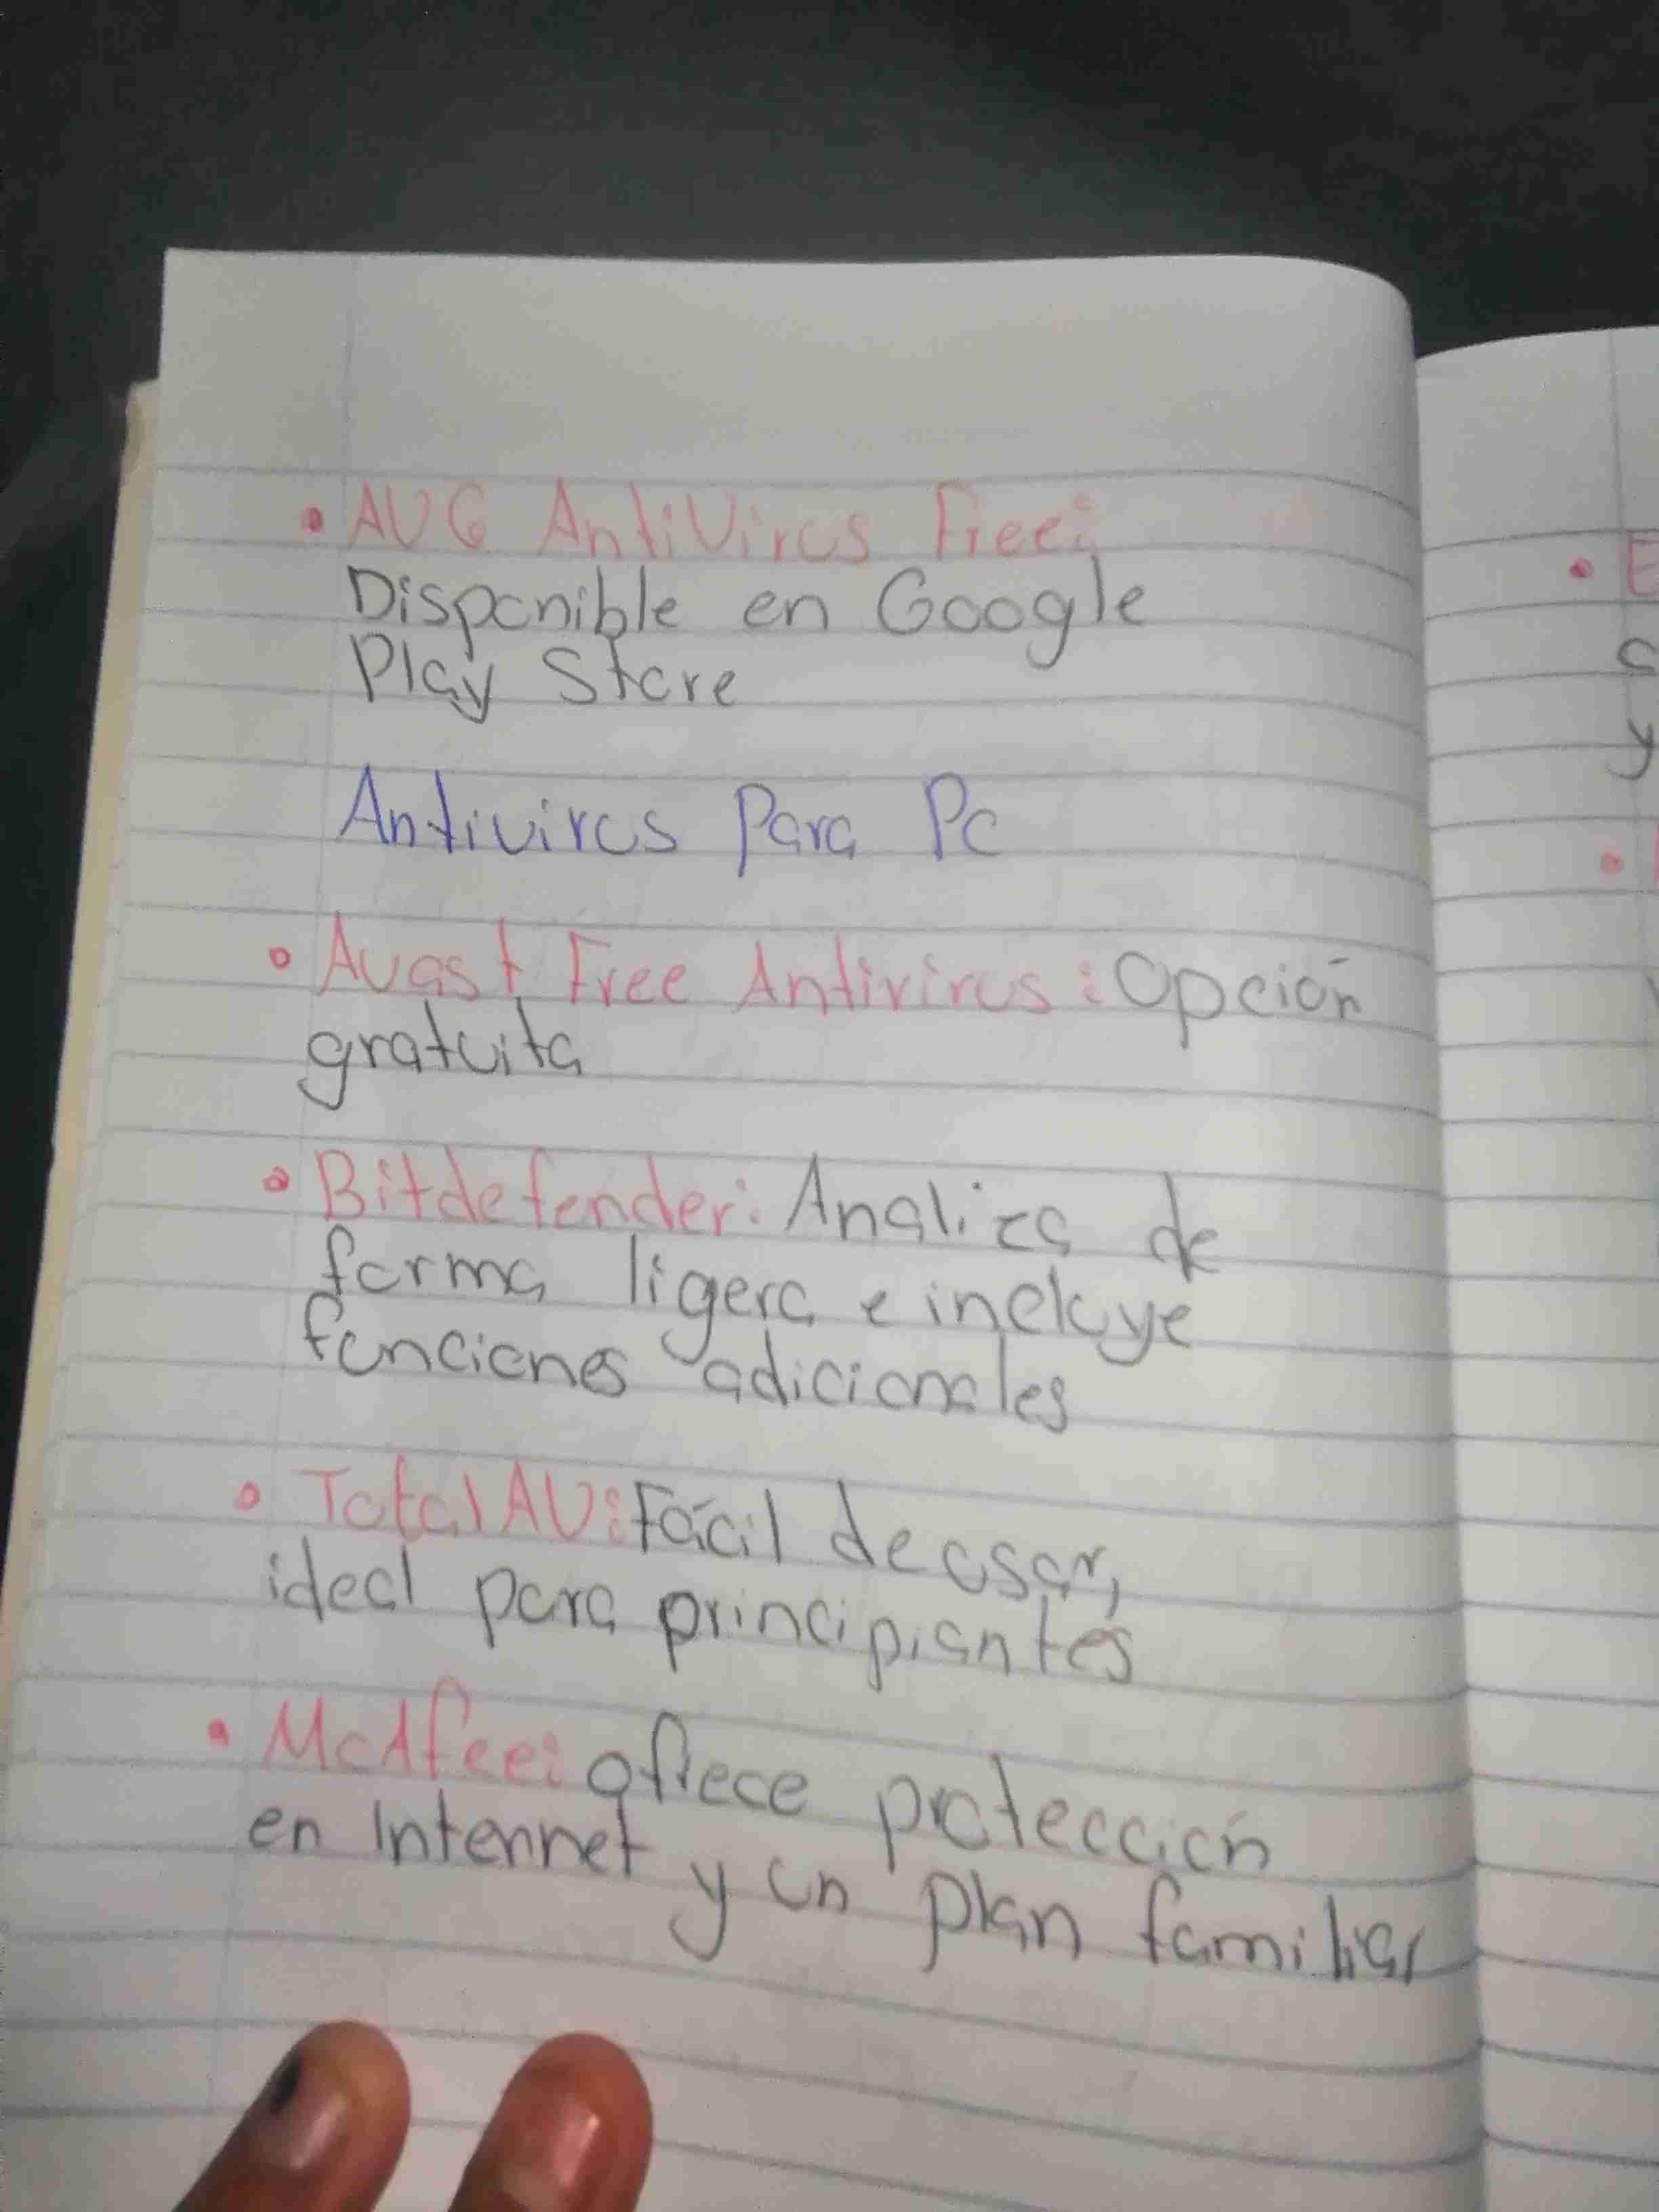 • AVG AntiVirus Free:
Disponible en Google
Play Store
Antivirus Para Pc
• Avast Free Antivirus: Opción
gratuita
• Bitdefender: Analiza de
forma ligera e incluye
funciones adicionales
• Total AV: Fácil de usar,
ideal para principiantes
• McAfee: ofrece protección
en Internet y un plan familiar